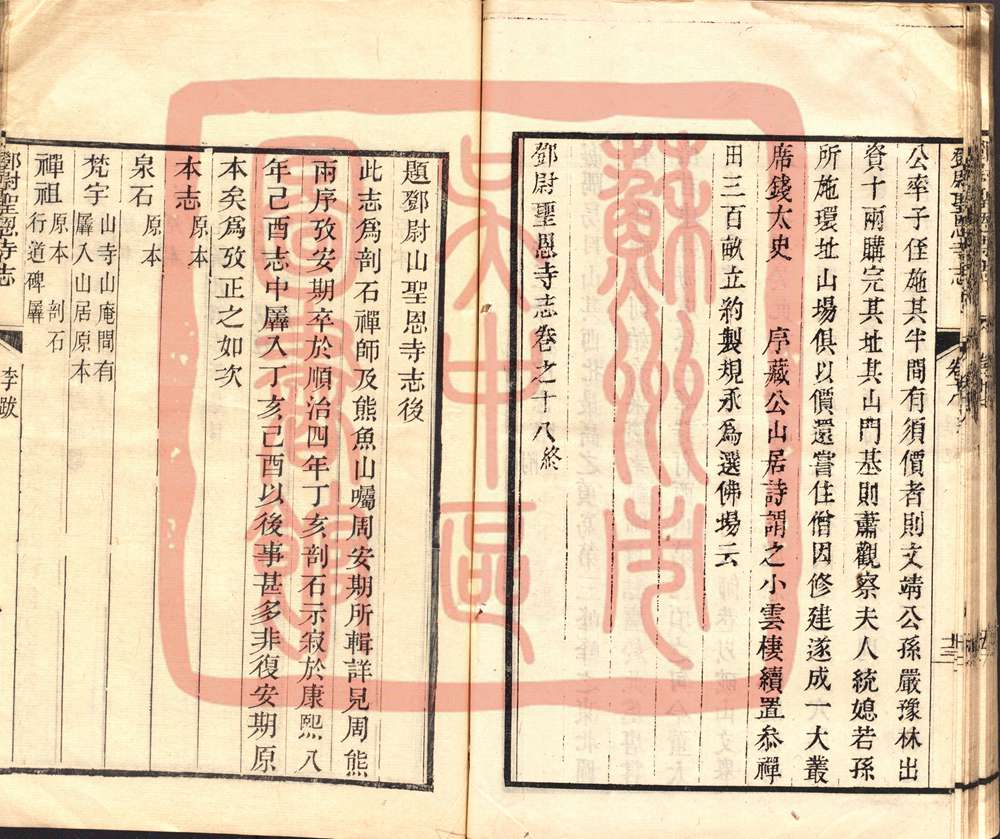 公率子侄施其半間有須價者則文靖公孫嚴豫林出
資十兩購完其址其山門基則蕭觀察夫人統媳若孫
所施環址山場俱以價還嘗住僧因修建遂成一大叢
席錢太史 序藏公山居詩謂之小雲棲續置叅禪
田三百畝立約製規永為選佛場云
鄧尉聖恩寺志卷之十八終
題鄧尉山聖恩寺志後
此志爲剖石禪師及熊魚山囑周安期所輯詳見周熊
兩序攷安期卒於順治四年丁亥剖石示寂於康熙八
年己酉志中羼入丁亥己酉以後事甚多非復安期原
本矣爲攷正之如次
本志 原本
泉石 原本
梵宇 山寺山庵間有
羼入山居原本
禪祖 原本 剖石
行道碑羼
鄧尉聖恩寺志
李跋
蘇州市
吳中區
圖書館